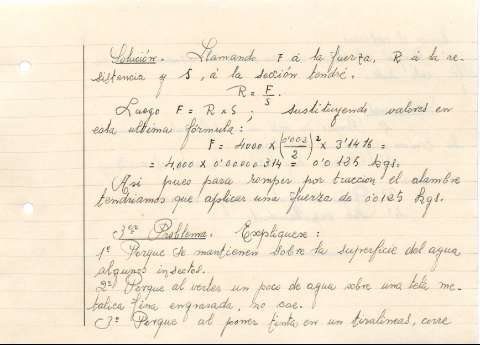 Solución. Llamando F á la fuerza, R á la re-
sistencia y S, á la sección tendré.
R = F/S.
Luego F = R x S; sustituyendo valores en
esta ultima fórmula:
F = 4000 x (0'002/2)² x 3'1416 =
= 4,000 x 0'00000314 = 0'0125 kgs.
Asi pues para romper por traccion el alambre
tendriamos que aplicar una fuerza de 0'0125 Kgs.
3er Problema. Expliquese:
1º Porque se mantienen sobre la superficie del agua
algunos insectos.
2º Porque al verter un poco de agua sobre una tela me-
talica fina engrasada, no cae.
3º Porque al poner tinta en un tiralineas, corre